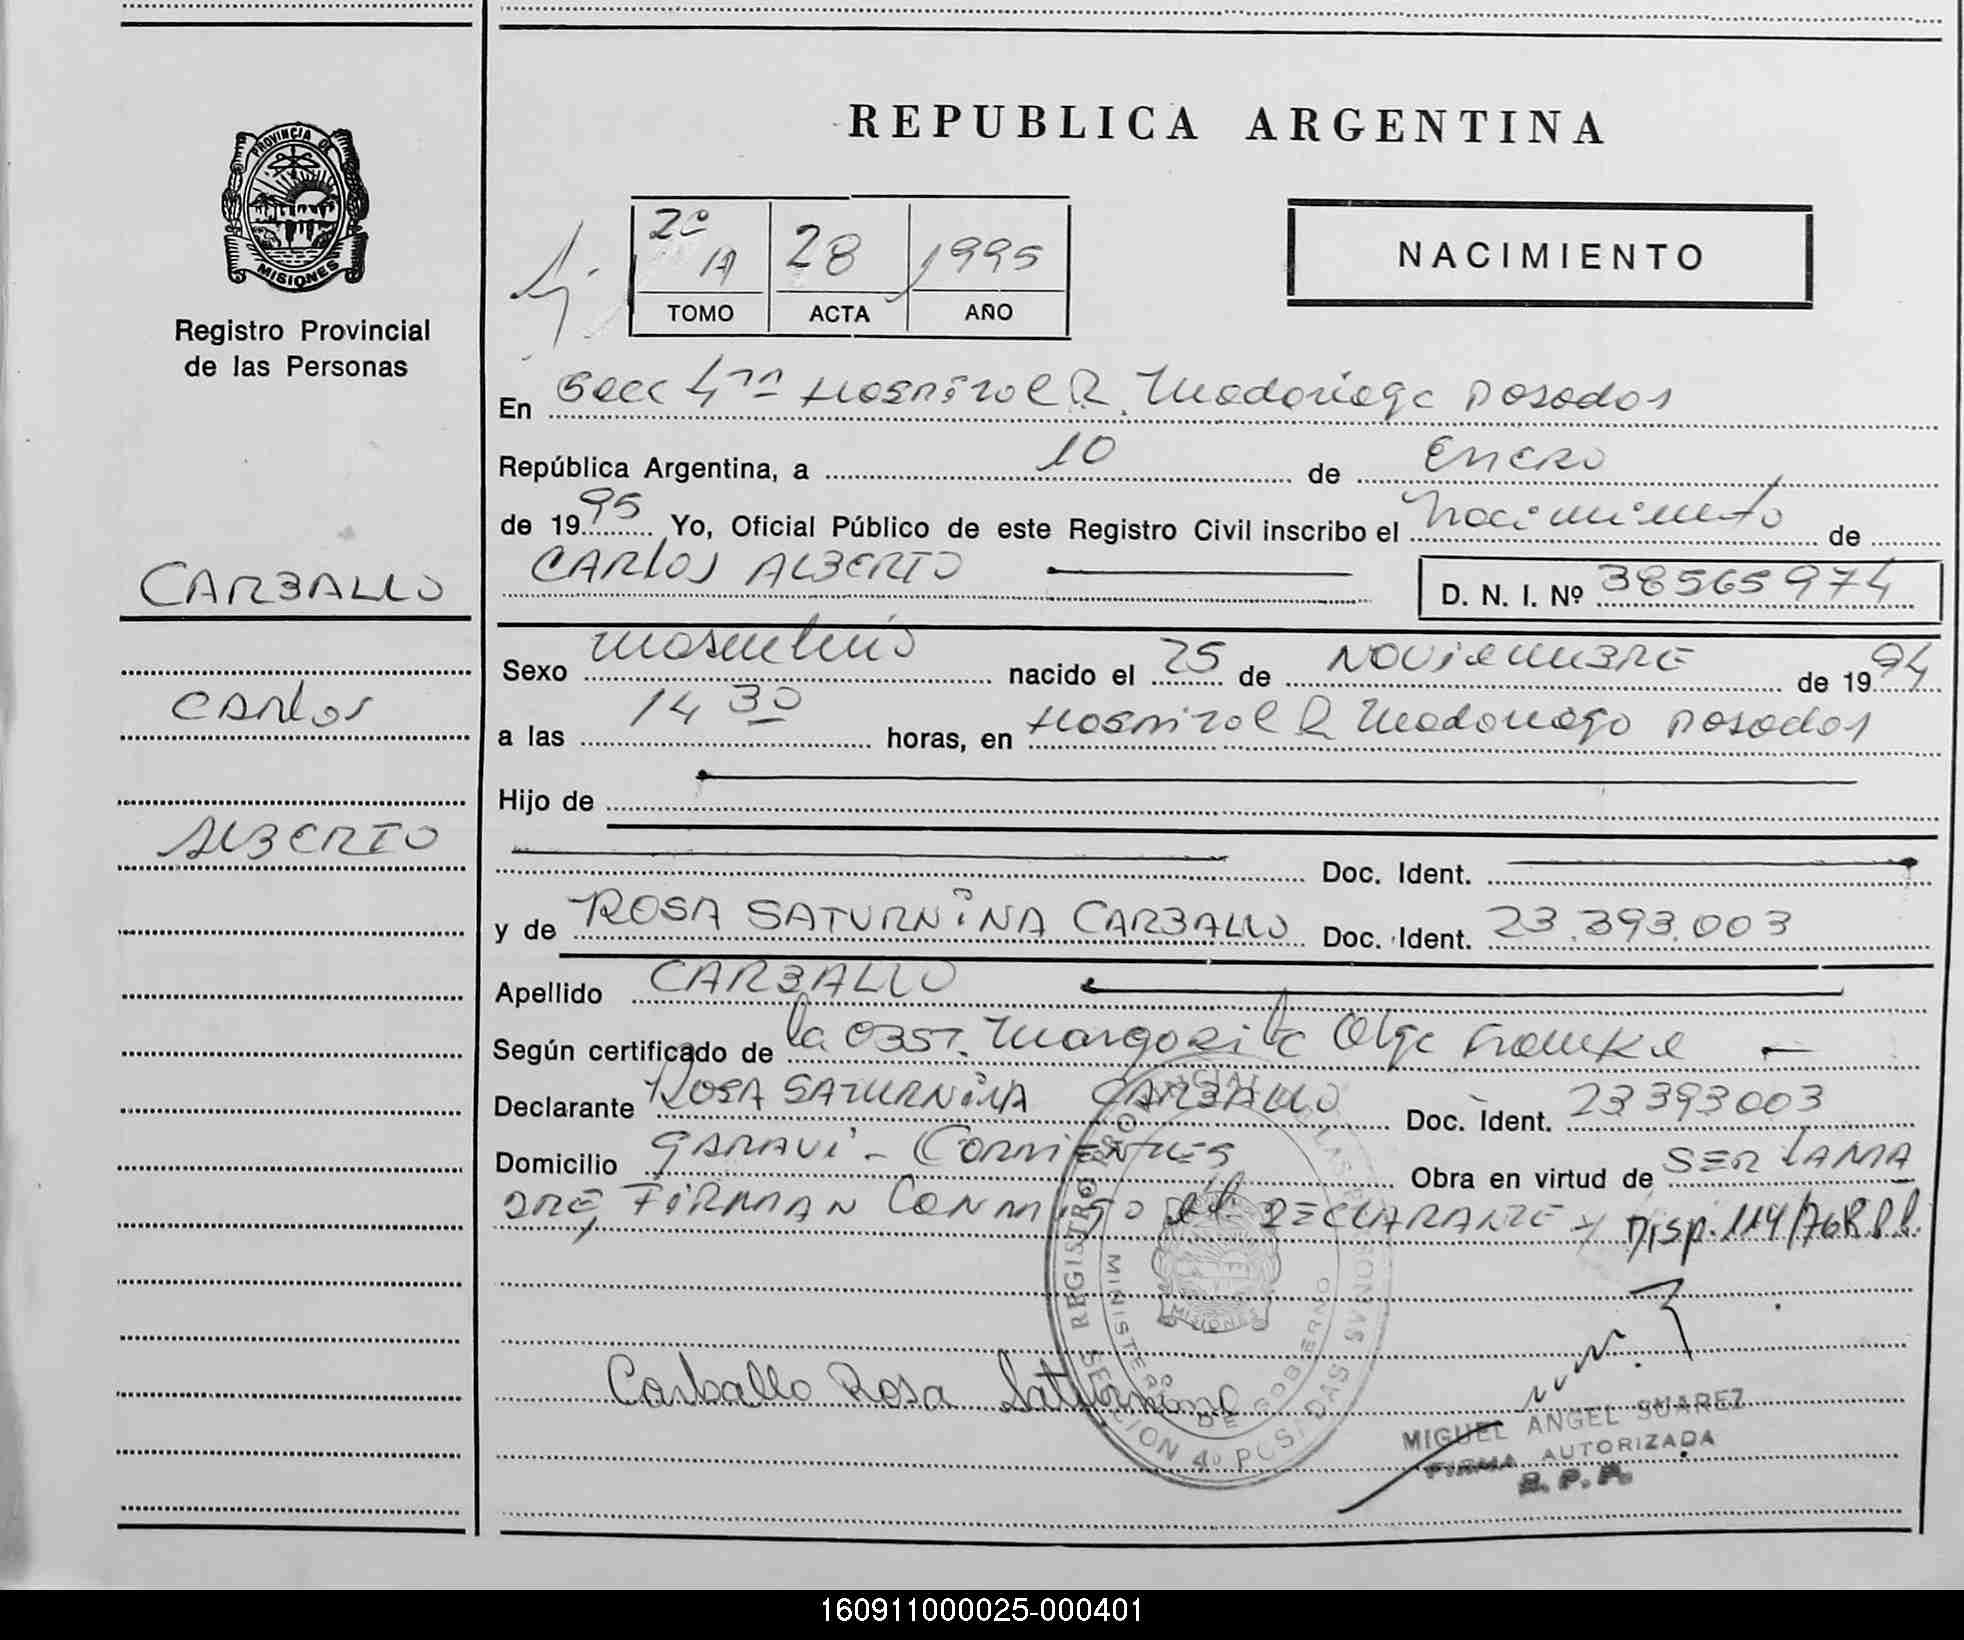 REPUBLICA ARGENTINA
PROVINCIA DE
MISIONES
Registro Provincial
de las Personas
2º A 28 1995
TOMO ACTA AÑO
NACIMIENTO
En Secc 4ta Hospital R. Madariaga Posadas
República Argentina, a 10 de Enero
de 1995 Yo, Oficial Público de este Registro Civil inscribo el Nacimiento de
CARLOS ALBERTO D. N. I. Nº 38565974
CARBALLO
Carlos
ALBERTO
Sexo masculino nacido el 25 de NOVIEMBRE de 1994
a las 14 30 horas, en Hospital R Madariaga Posadas
Hijo de
Doc. Ident.
y de ROSA SATURNINA CARBALLO Doc. Ident. 23.393.003
Apellido CARBALLO
Según certificado de la OBST. Margarita Olga Franke
Declarante ROSA SATURNINA CARBALLO Doc. Ident. 23393003
Domicilio GARAVI - CORRIENTES Obra en virtud de SER LA MA
DRE, FIRMAN CONMIGO el DECLARANTE y Disp. 114/76 R.P.P.
Carballo Rosa Saturnina
REGISTRO PROVINCIAL DE LAS PERSONAS
MINISTERIO DE GOBIERNO
MISIONES
SECCION 4º POSADAS
MIGUEL ANGEL SUAREZ
FIRMA AUTORIZADA
R. P. P.
160911000025-000401